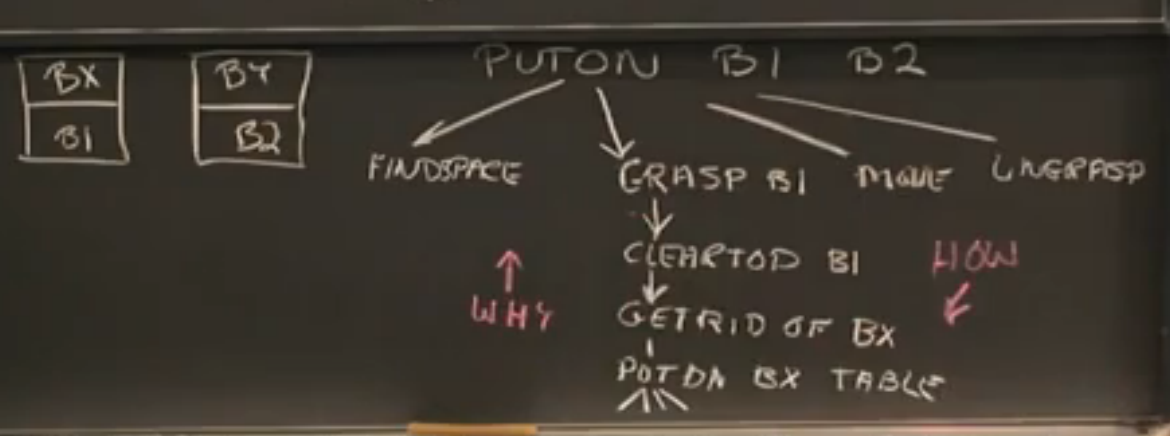 BX
B1
BY
B2
PUTON B1 B2
FINDSPACE GRASP B1 MOVE UNGRASP
CLEARTOP B1
HOW
WHY
GETRID OF BX
PUTON BX TABLE